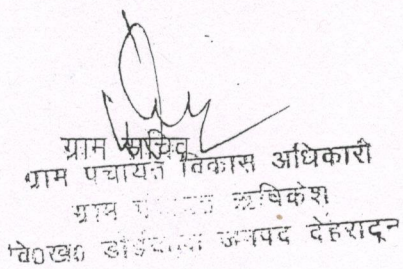 ग्राम सचिव
ग्राम पचायत विकास अधिकारी
ग्राम ऋषिकेश
वि०ख० डोईवाला जनपद देहरादून